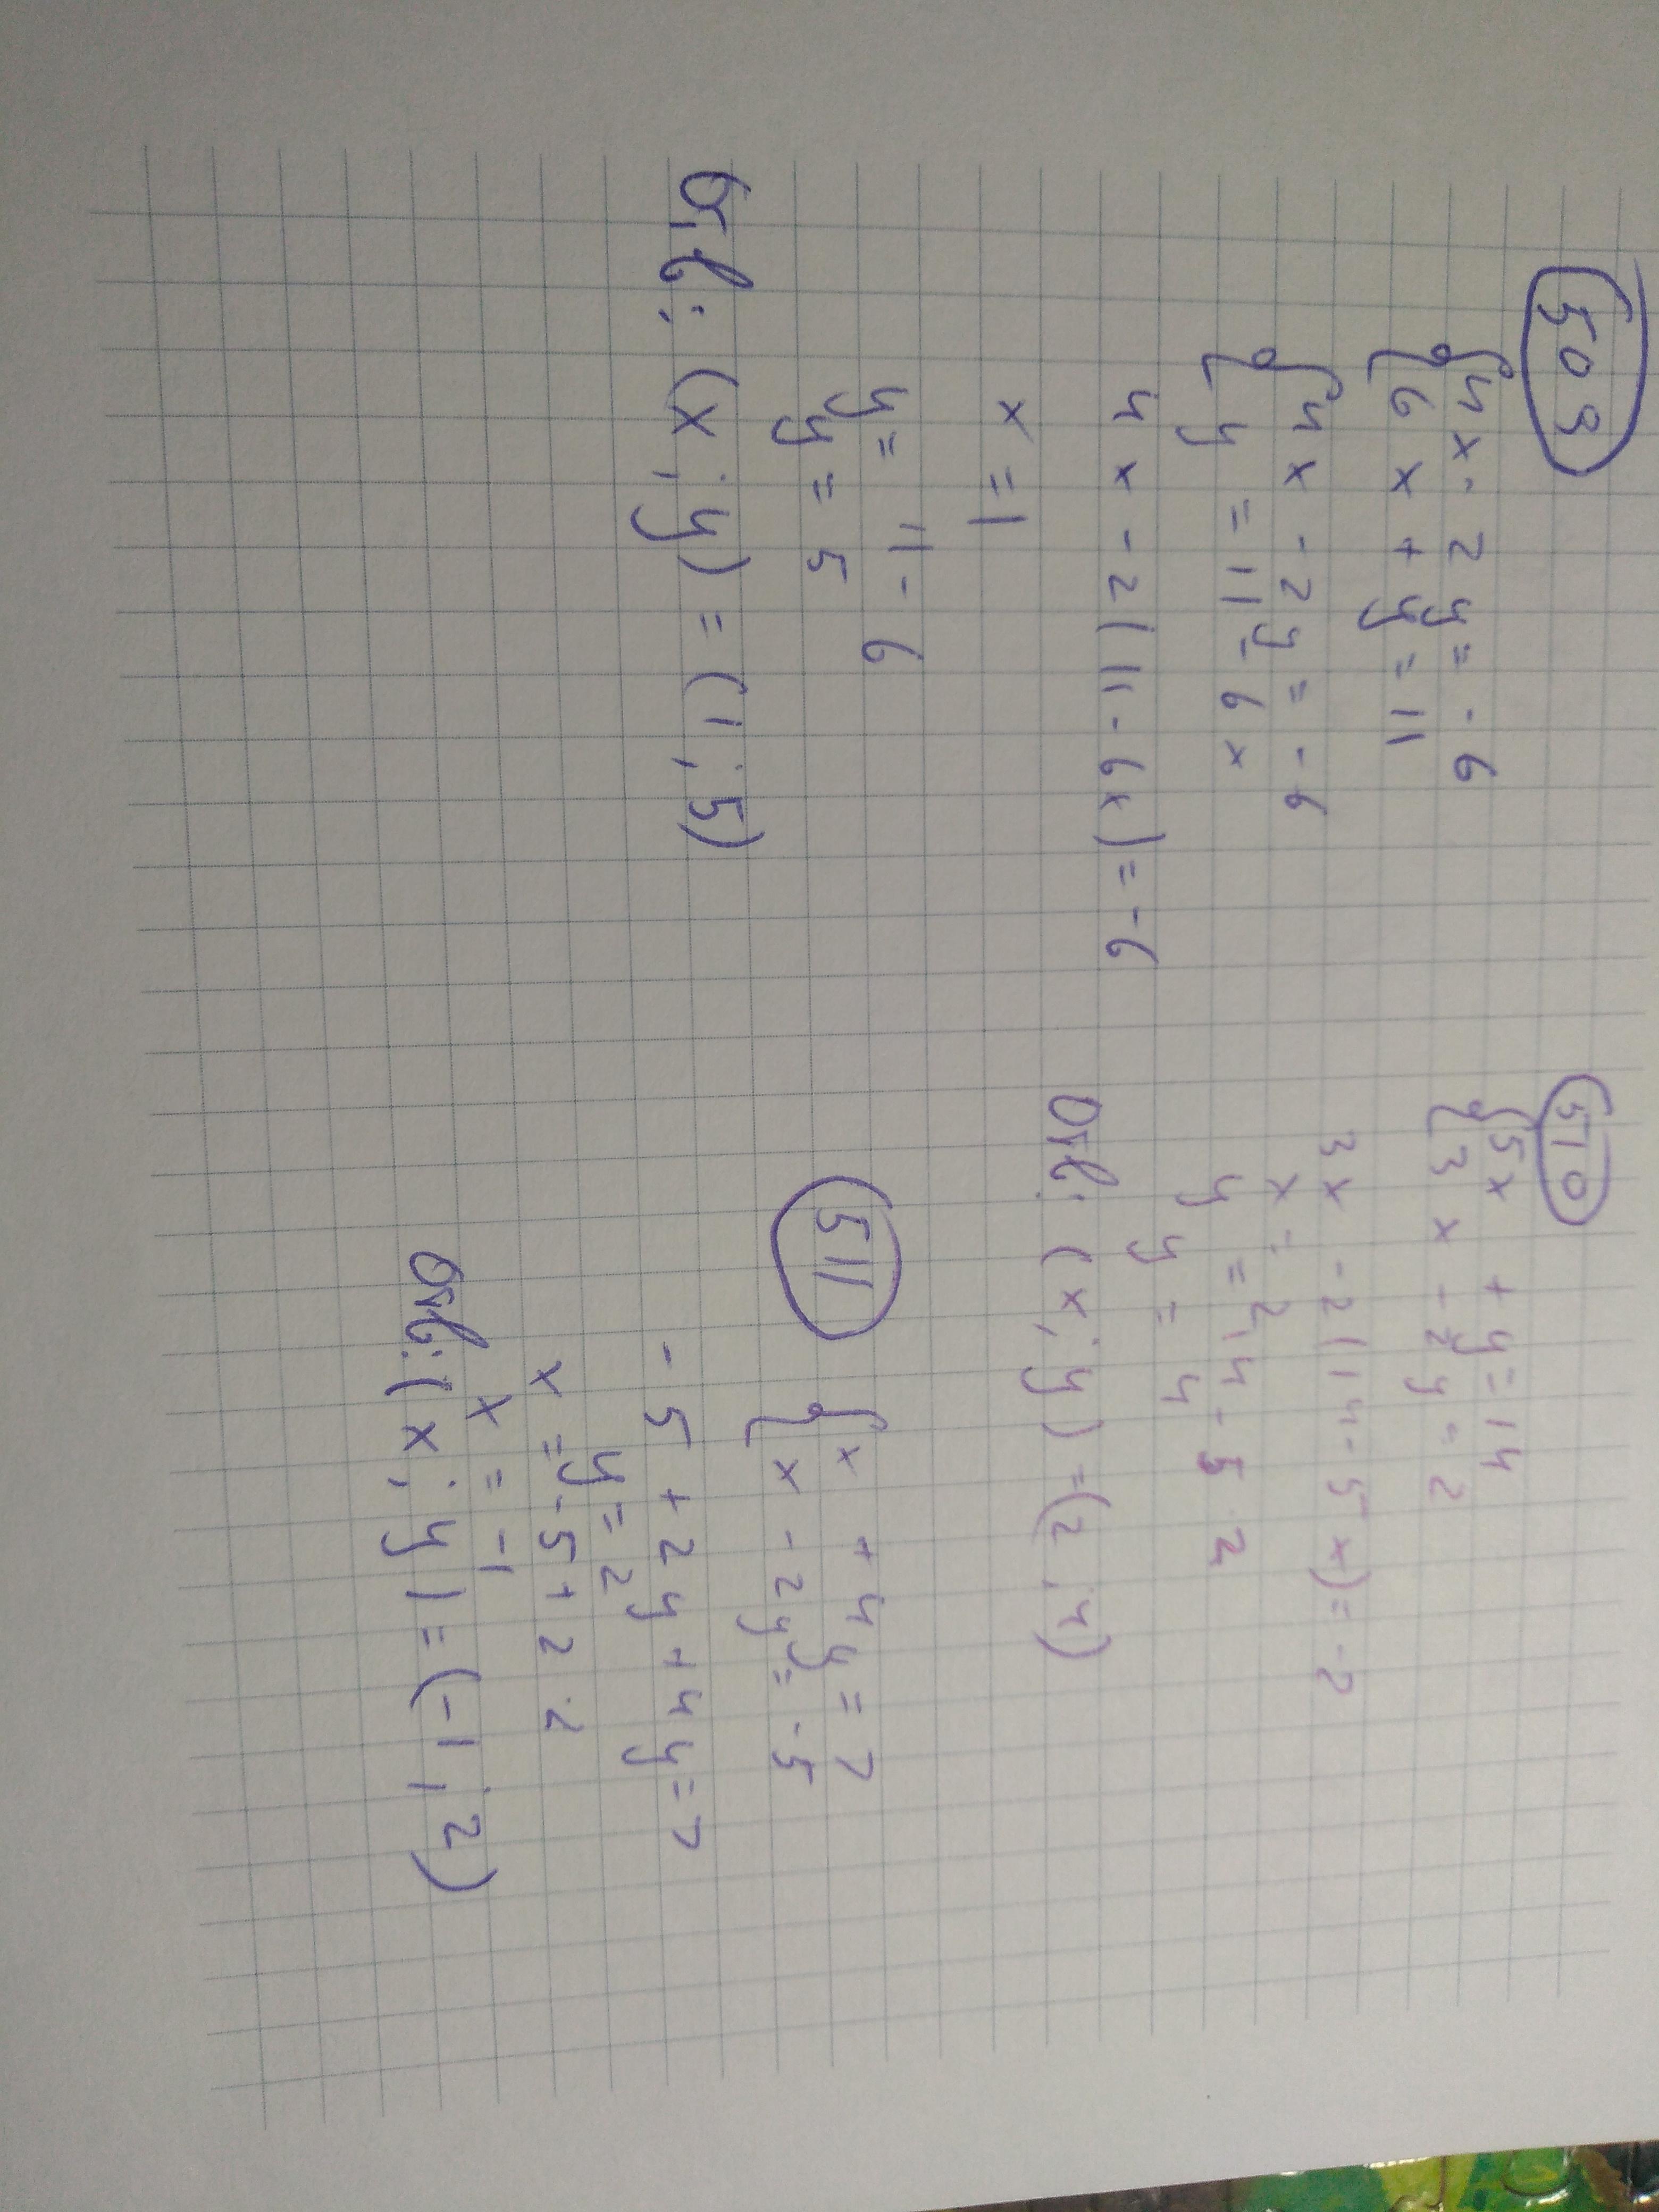 509
{4x - 2y = -6
{6x + y = 11
{4x - 2y = -6
{y = 11 - 6x
4x - 2(11 - 6x) = -6
x = 1
y = 11 - 6
y = 5
Отв.: (x; y) = (1; 5)
510
{5x + y = 14
{3x - 2y = -2
3x - 2(14 - 5x) = -2
x = 2
y = 14 - 5 · 2
y = 4
Отв: (x; y) = (2; 4)
511
{x + 4y = 7
{x - 2y = -5
-5 + 2y + 4y = 7
y = 2
x = -5 + 2 · 2
x = -1
Отв: (x; y) = (-1; 2)